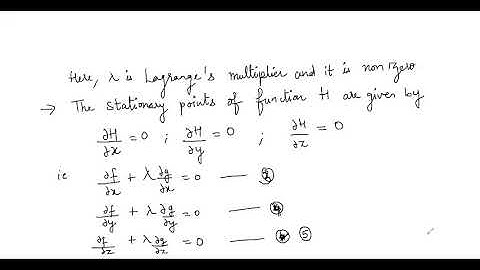 Here, λ is Lagrange's multiplier and it is non zero
→ The stationary points of function H are given by
∂H/∂x = 0 ; ∂H/∂y = 0 ; ∂H/∂z = 0
ie ∂f/∂x + λ ∂g/∂x = 0 —
∂f/∂y + λ ∂g/∂y = 0 — ④
∂f/∂z + λ ∂g/∂z = 0 — ⑤